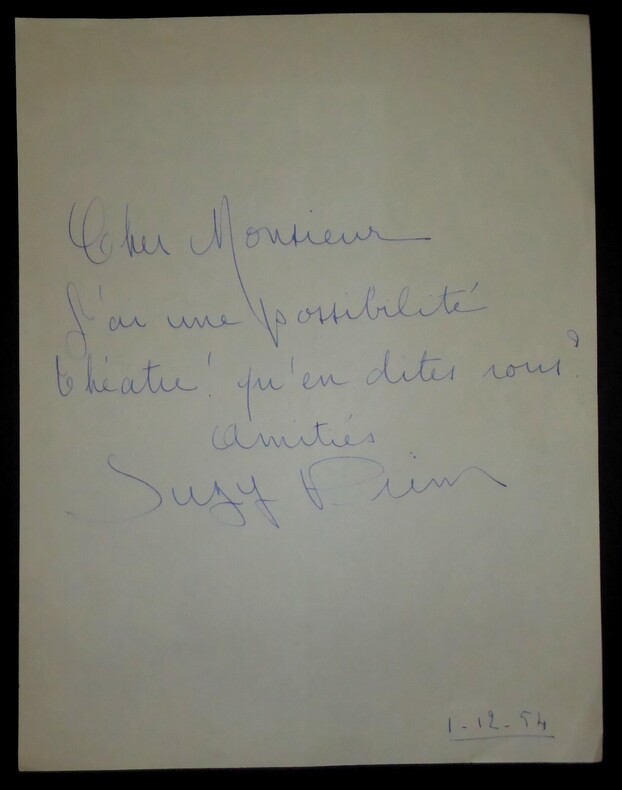 Cher Monsieur
J'ai une possibilité
théatre! qu'en dites vous?
amitiés
Suzy Prim
1-12-54